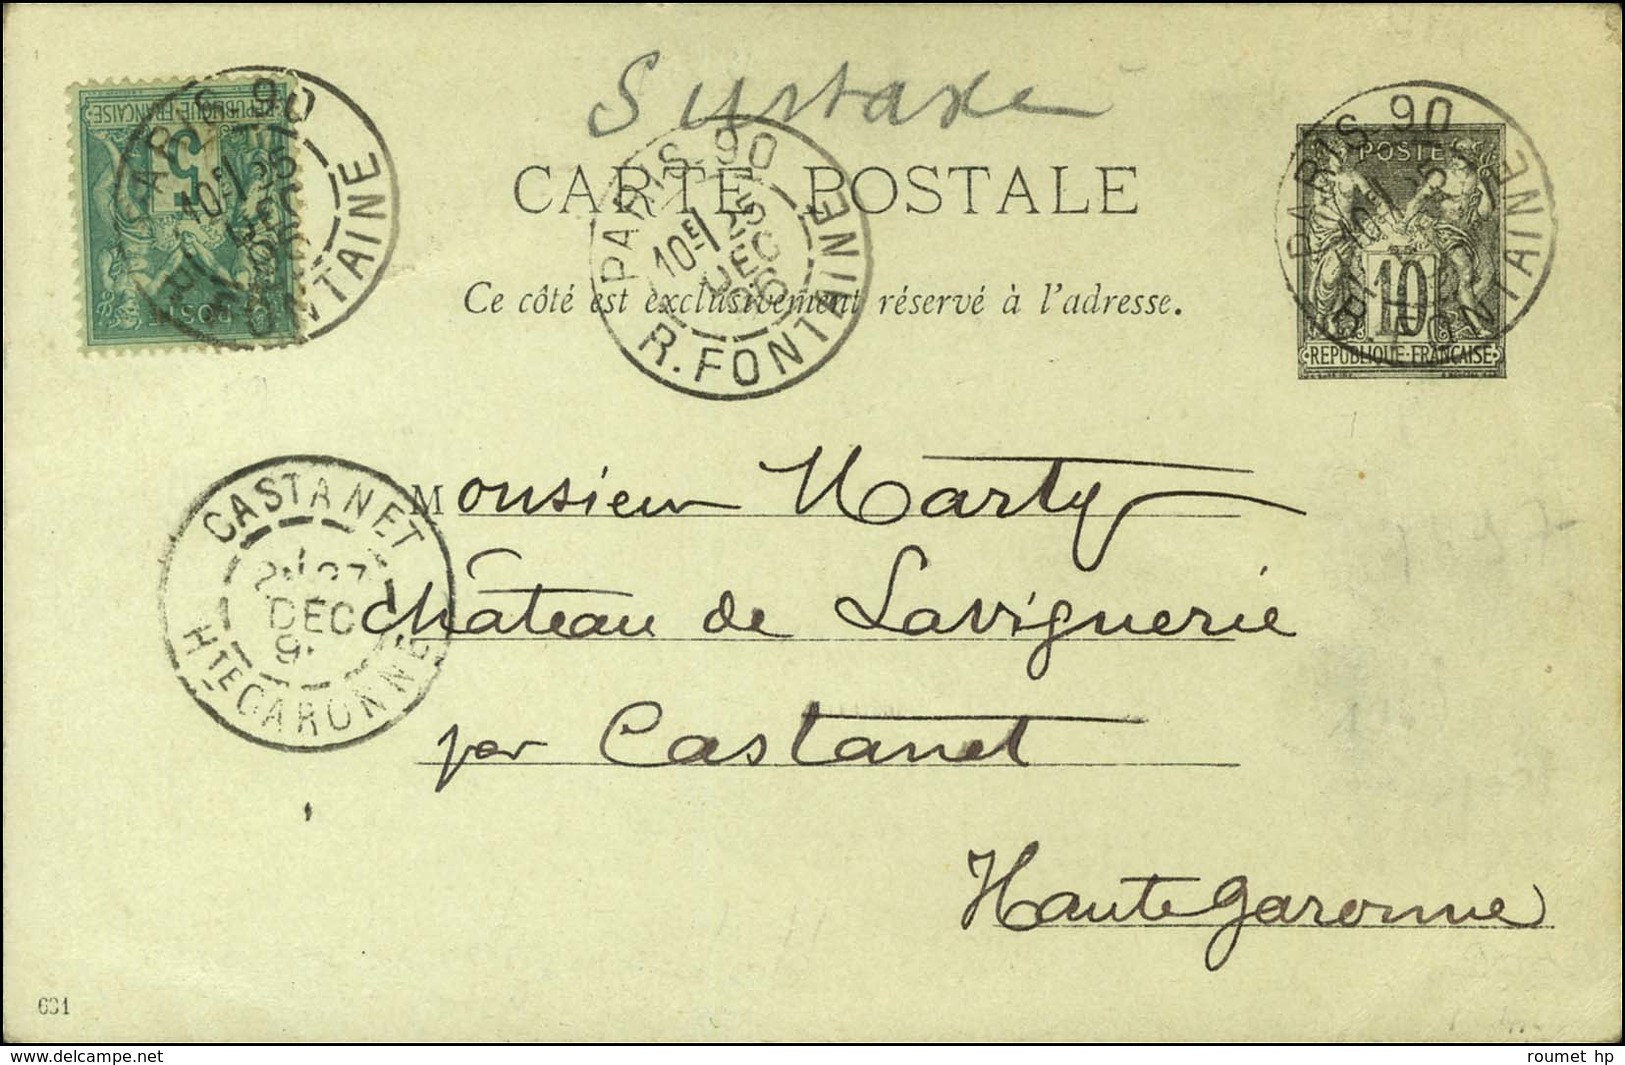 Surtaxe
REPUBLIQUE FRANÇAISE
5
POSTE
PARIS-90
10E/25
R. FONTAINE
CARTE POSTALE
PARIS-90
10E/25
DEC
96
R. FONTAINE
PARIS-90
R. FONTAINE
POSTES
10
REPUBLIQUE FRANÇAISE
Ce côté est exclusivement réservé à l'adresse.
CASTANET
DEC
HTE GARONNE
Monsieur Marty
château de Lavignerie
par Castanet
Haute Garonne
631
www.delcampe.net
roumet hp